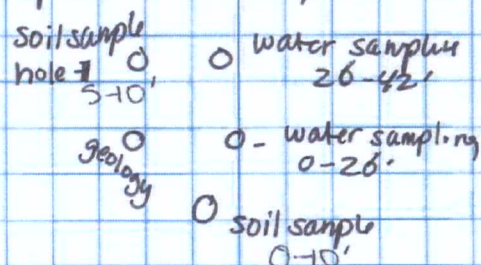 soil sample
hole 1
5-10'
water sampling
26-42'
geology
water sampling
0-26'
soil sample
0-10'